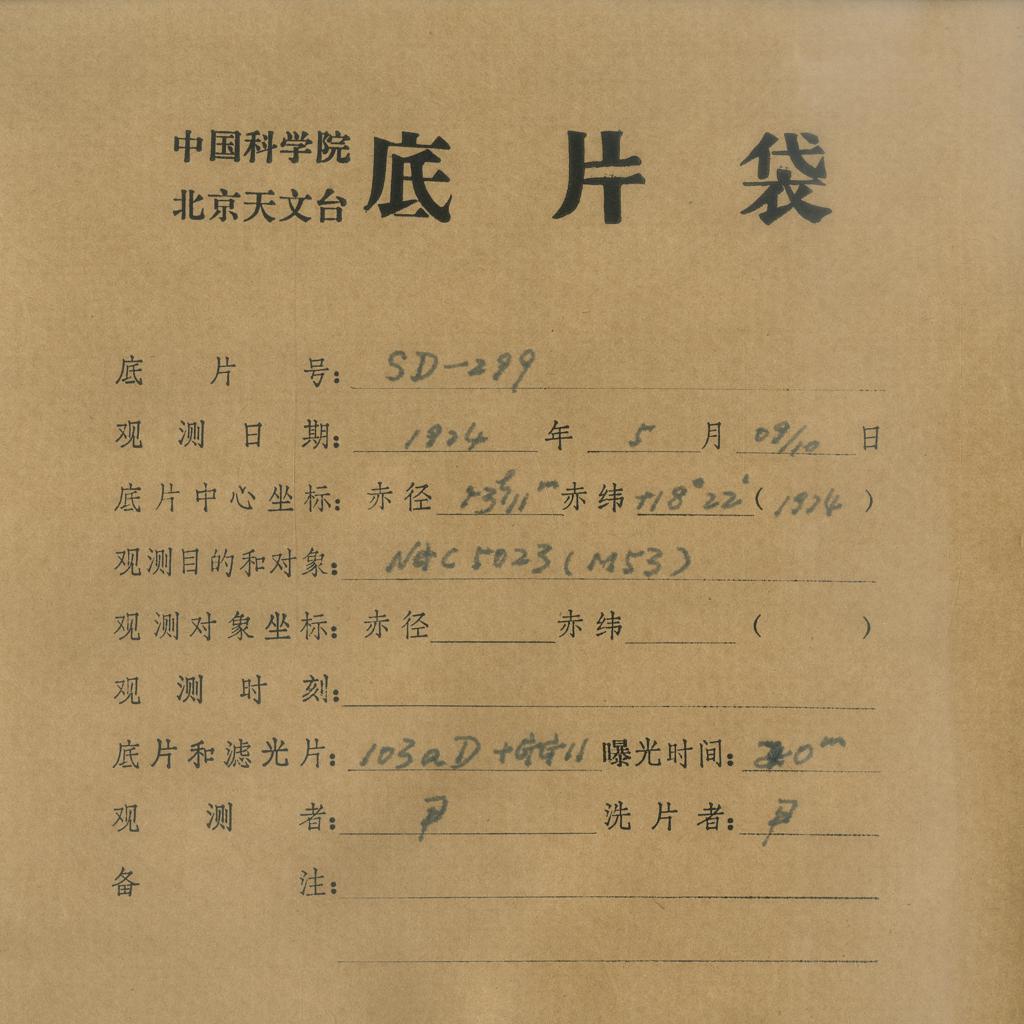 中国科学院
北京天文台
底片袋
底片号: SD-299
观测日期: 1974 年 5 月 09/10 日
底片中心坐标: 赤径 13ʰ11ᵐ 赤纬 +18°22′ (1974)
观测目的和对象: NGC 5023 (M53)
观测对象坐标: 赤径 赤纬 ( )
观测时刻:
底片和滤光片: 103aD + GG11 曝光时间:
观测者: 尹 洗片者: 尹
备注: